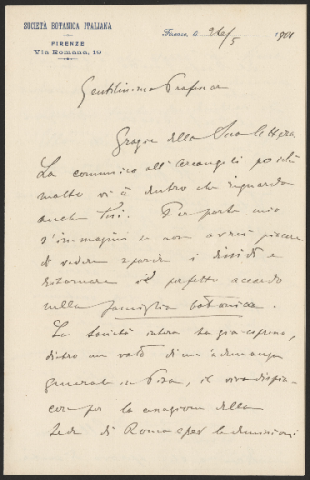 SOCIETÀ BOTANICA ITALIANA
FIRENZE
Via Romana, 19
Firenze, li 24/5 1901
Gentilissimo Professore
Grazie della Sua lettera
La comunico all'Arcangeli poichè
molto vi è dentro che riguarda
anche Lui. Per parte mia
s'immagini se non avrei piacere
di vedere sparire i dissidi e
ritornare il perfetto accordo
nella famiglia botanica.
La Società intera ha già espresso,
dietro un voto di un'adunanza
generale in Pisa, il vivo dispia-
cere per la cessazione della
Sede di Roma e per le dimissioni